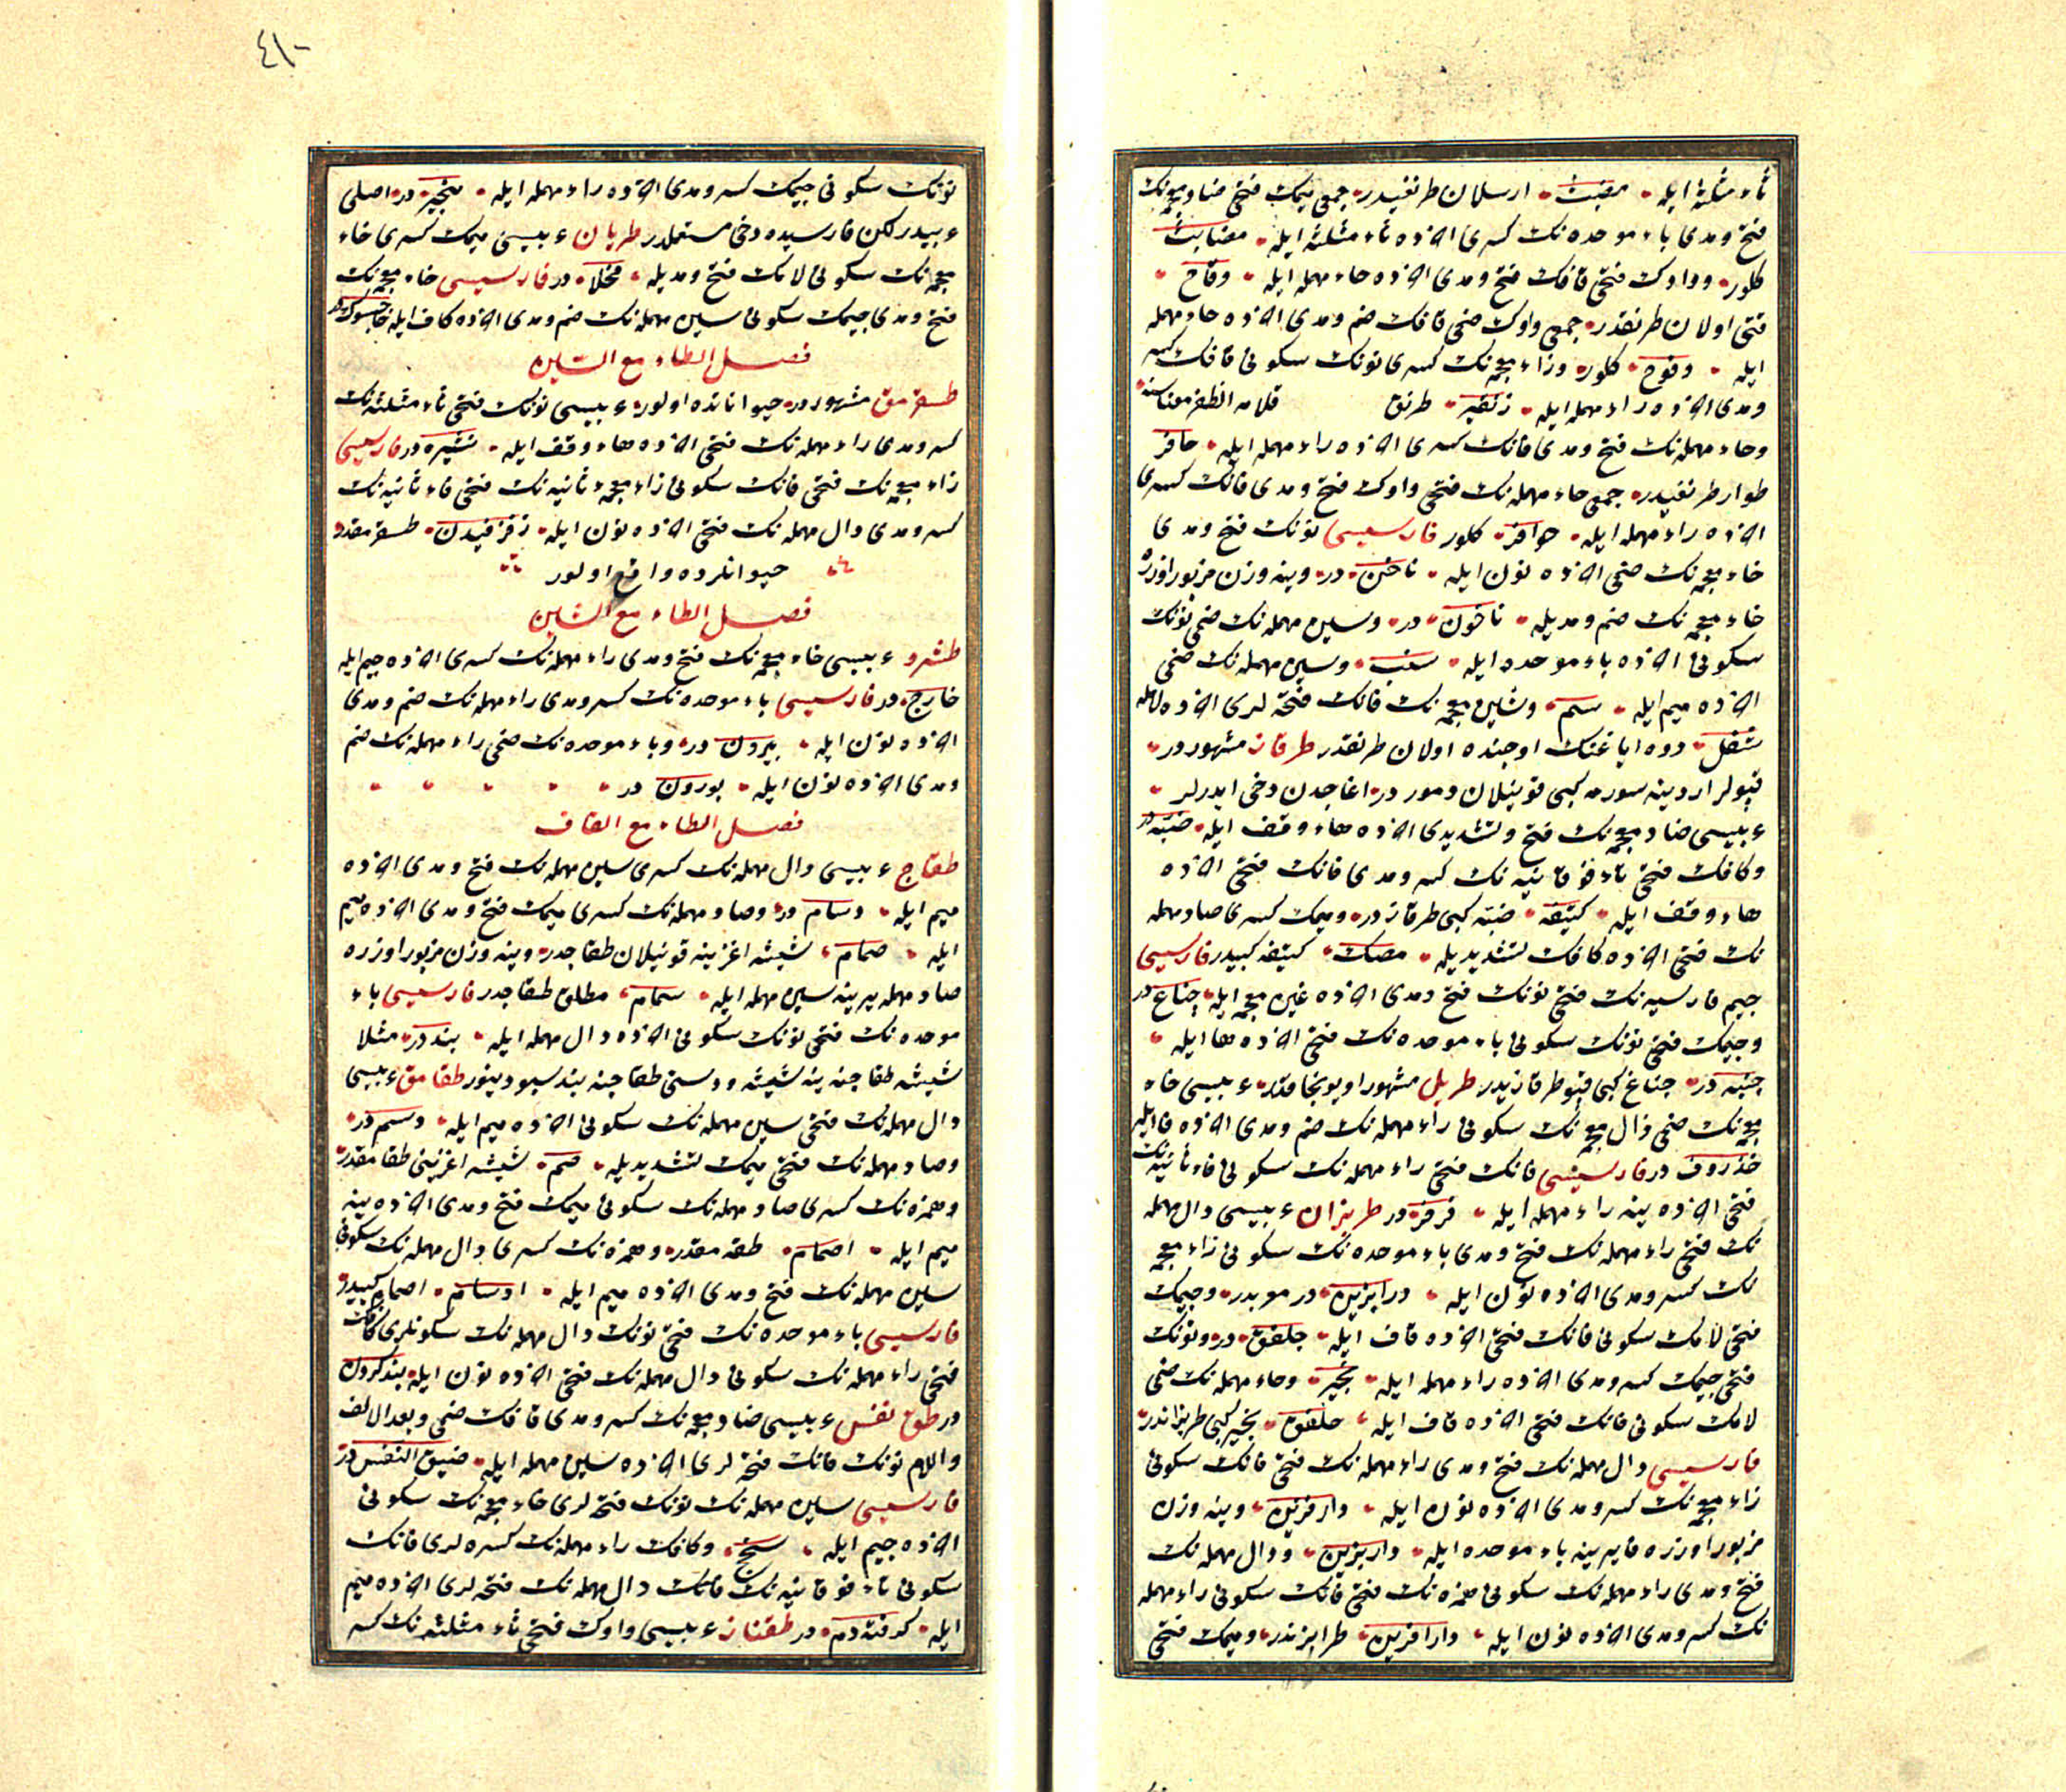 ثاء مثلثه ايله مضبث ارسلان طرنغيدر جمعى ميمك فتحى ضاد معجمه نك
فتح ومدى باء موحده نك كسرى اخرده ثاء مثلثه ايله مضابث
كلور وواوك فتحى قافك فتح ومدى اخرده حاء مهمله ايله وقاح
قتى اولان طرنقدر جمعى واوك ضمى قافك ضم ومدى اخرده حاء مهمله
ايله وقوح كلور وزاء معجمه نك كسرى نونك سكونى قافك كسر
ومدى اخرده راء مهمله ايله زنقير طرنق قلامه الظفر معناسنه
وحاء مهمله نك فتح ومدى فانك كسرى اخرده راء مهمله ايله حافر
طوار طرنغيدر جمعى حاء مهمله نك فتحى واوك فتح ومدى فانك كسرى
اخرده راء مهمله ايله حوافر كلور فارسيسى نونك فتح ومدى
خاء معجمه نك ضمى اخرده نون ايله ناخن در وينه وزن مزبور اوزره
خاء معجمه نك ضم ومديله ناخون در وسين مهمله نك ضمى نونك
سكونى اخرده باء موحده ايله سنب وسين مهمله نك ضمى
اخرده ميم ايله سم وشين معجمه نك فانك فتحه لرى اخرده لامله
شفل دوه اياغنك اوجنده اولان طرنقدر طرقاز مشهوردر
قپولر اردينه سورمه كبى قونيلان دمور در اغاجدن دخى ايدرلر
عربيسى ضاد معجمه نك فتح وتشديدى اخرده هاء وقف ايله ضبه در
وكافك فتحى تاء فوقانيه نك كسر ومدى فانك فتحى اخرده
هاء وقف ايله كتيفه ضبه كبى طرقازدر وميمك كسرى صاد مهمله
نك فتحى اخرده كافك تشديديله مصك كتيفه كبيدر فارسيسى
جيم فارسيه نك فتحى نونك فتح ومدى اخرده غين معجمه ايله جناغ در
وجيمك فتحى نونك سكونى باء موحده نك فتحى اخرده ها ايله
جنبه در جناغ كبى قپو طرقازيدر طربل مشهور اويونجاقدر عربيسى خاء
معجمه نك ضمى ذال معجمه نك سكونى راء مهمله نك ضم ومدى اخرده فا ايله
خذروف در فارسيسى فانك فتحى راء مهمله نك سكونى فاء ثانيه نك
فتحى اخرده ينه راء مهمله ايله فرفر در طربزان عربيسى دال مهمله
نك فتحى راء مهمله نك فتح ومدى باء موحده نك سكونى زاء معجمه
نك كسر ومدى اخرده نون ايله درابزين در موبدر وجيمك
فتحى لامك سكونى فانك فتحى اخرده قاف ايله جلفق در ونونك
فتحى جيمك كسر ومدى اخرده راء مهمله ايله نجير وحاء مهمله نك ضمى
لامك سكونى فانك فتحى اخرده قاف ايله حلفق نجير كبى طربزاندر
فارسيسى دال مهمله نك فتح ومدى راء مهمله نك فتحى فانك سكونى
زاء معجمه نك كسر ومدى اخرده نون ايله دارفزين وينه وزن
مزبور اوزره فا يرينه باء موحده ايله داربزين ودال مهمله نك
فتح ومدى راء مهمله نك سكونى همزه نك فتحى فانك سكونى راء مهمله
نك كسر ومدى اخرده نون ايله دارافرين طرابزندر وميمك فتحى
٤١٠
نونك سكونى جيمك كسر ومدى اخرده راء مهمله ايله منجير در اصلى
عربيدر لكن فارسيده دخى مستعملدر طربان عربيسى ميمك كسرى خاء
معجمه نك سكونى لامك فتح ومديله مخلا در فارسيسى خاء معجمه نك
فتح ومدى جيمك سكونى سين مهمله نك ضم ومدى اخرده كاف ايله خاجسوك در
فصل الطاء مع السين
طسقرمق مشهوردر حيواناتده اولور عربيسى نونك فتحى ثاء مثلثه نك
كسر ومدى راء مهمله نك فتحى اخرده هاء وقف ايله نثيره در فارسيسى
زاء معجمه نك فتحى فانك سكونى زاء معجمه ثانيه نك فتحى فاء ثانيه نك
كسر ومدى دال مهمله نك فتحى اخرده نون ايله زفزفيدن طسقرمقدر
حيوانلرده واقع اولور
فصل الطاء مع الشين
طشرو عربيسى خاء معجمه نك فتح ومدى راء مهمله نك كسرى اخرده جيم ايله
خارج در فارسيسى باء موحده نك كسر ومدى راء مهمله نك ضم ومدى
اخرده نون ايله بيرون در وباء موحده نك ضمى راء مهمله نك ضم
ومدى اخرده نون ايله بورون در
فصل الطاء مع القاف
طقاج عربيسى دال مهمله نك كسرى سين مهمله نك فتح ومدى اخرده
ميم ايله دسام در وصاد مهمله نك كسرى ميمك فتح ومدى اخرده ميم
ايله صمام شيشه اغزينه قونيلان طقاجدر وينه وزن مزبور اوزره
صاد مهمله يرينه سين مهمله ايله سمام مطلق طقاجدر فارسيسى باء
موحده نك فتحى نونك سكونى اخرده دال مهمله ايله بند در مثلا
شيشه طقاجنه بند شيشه ودستى طقاجنه بند سبو دينور طقامق عربيسى
دال مهمله نك فتحى سين مهمله نك سكونى اخرده ميم ايله دسم در
وصاد مهمله نك فتحى ميمك تشديديله صم شيشه اغزينى طقامقدر
وهمزه نك كسرى صاد مهمله نك سكونى ميمك فتح ومدى اخرده ينه
ميم ايله اصمام طقه مقدر وهمزه نك كسرى دال مهمله نك سكونى
سين مهمله نك فتح ومدى اخرده ميم ايله ادسام اصمام كبيدر
فارسيسى باء موحده نك فتحى نونك دال مهمله نك سكونلرى كافك
فتحى راء مهمله نك سكونى دال مهمله نك فتحى اخرده نون ايله بندكردن
در طق نفس عربيسى ضاد معجمه نك كسر ومدى قافك ضمى وبعد الالف
واللام نونك فانك فتحه لرى اخرده سين مهمله ايله ضيق النفس در
فارسيسى سين مهمله نك نونك فتحه لرى خاء معجمه نك سكونى
اخرده جيم ايله سنخج وكافك راء مهمله نك كسره لرى فانك
سكونى تاء فوقانيه نك فانك دال مهمله نك فتحه لرى اخرده ميم
ايله كرفته دم در طقناز عربيسى واوك فتحى ثاء مثلثه نك كسر